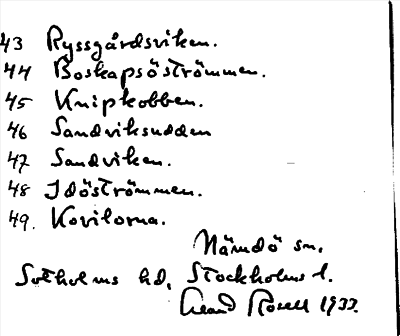 43 Ryssgårdsviken.
44 Boskapsöströmmen.
45 Knipkobben.
46 Sandviksudden
47 Sandviken.
48 Idöströmmen.
49. Kovilorna.
Nämdö sn.
Sotholms hd, Stockholms l.
Rosell 1933.